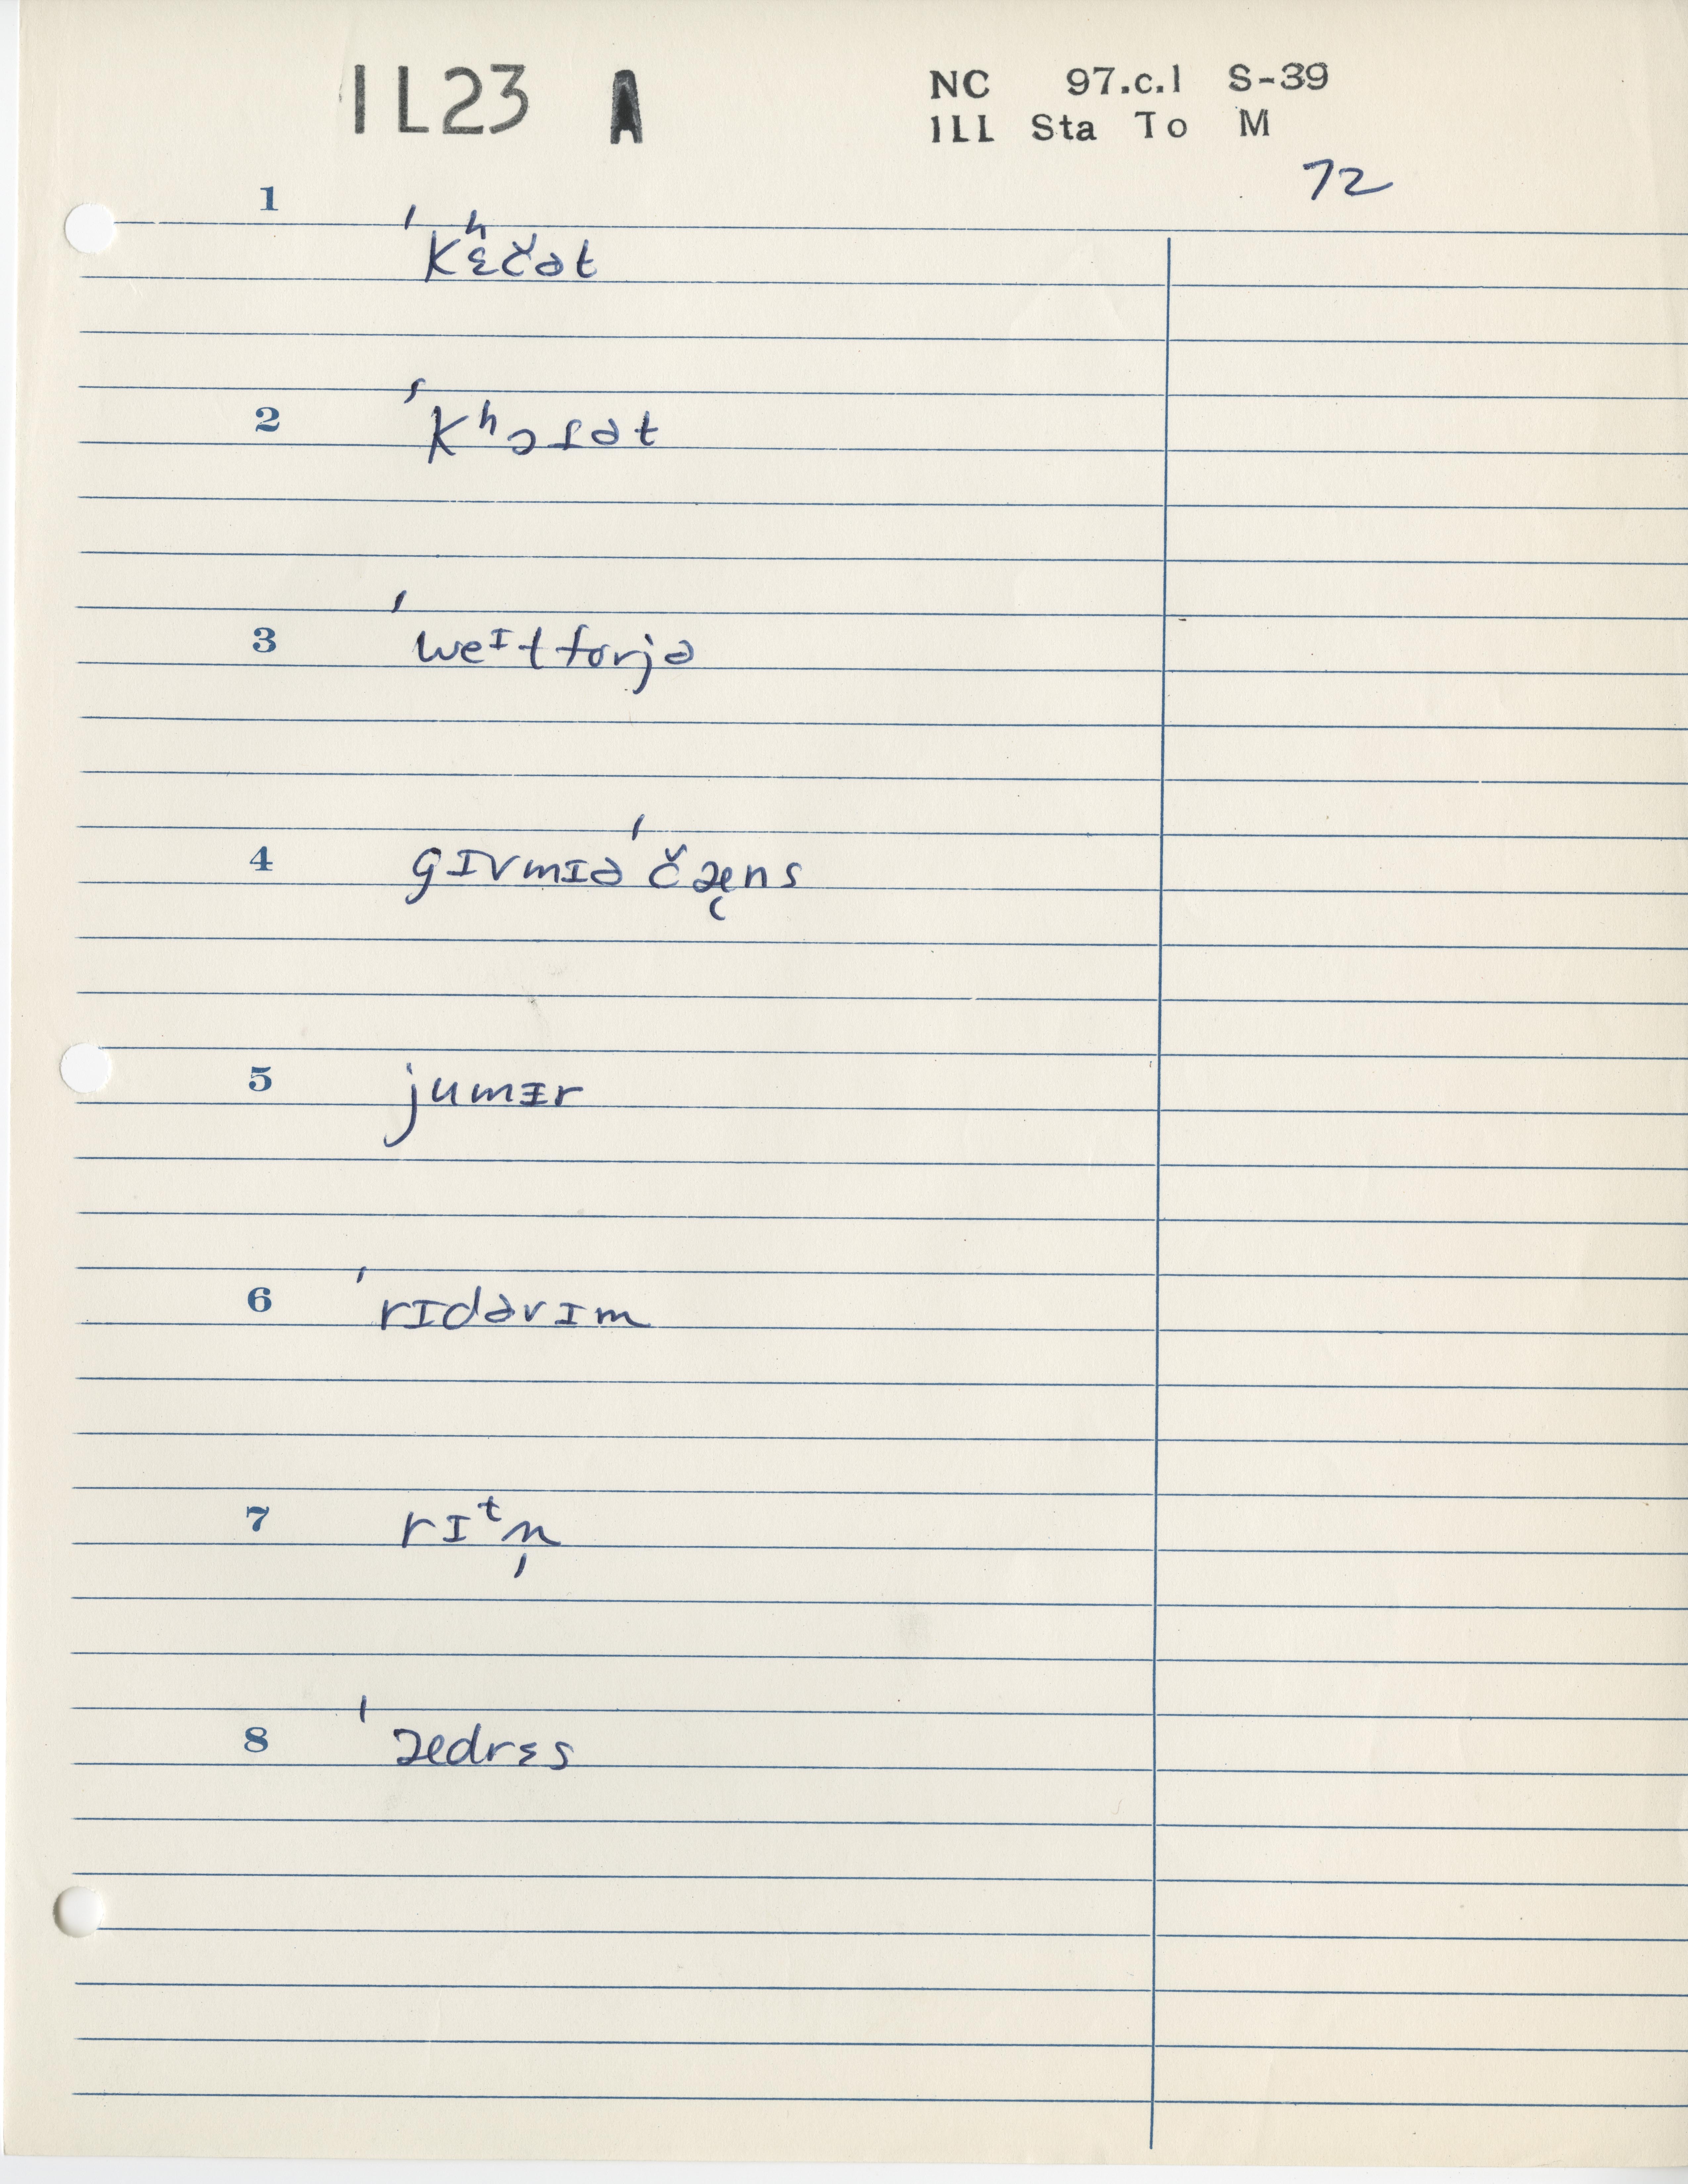 1L23 A
NC 97.c.1 S-39
1LL Sta To M
72
1 ˈkʰɛčət
2 ˈkʰɔfət
3 ˈweᴵtforjə
4 gɪvmɪəˈčæ̨ns
5 jumɪr
6 ˈrɪdəvɪm
7 rɪᵗn̩
8 ˈædrɛs